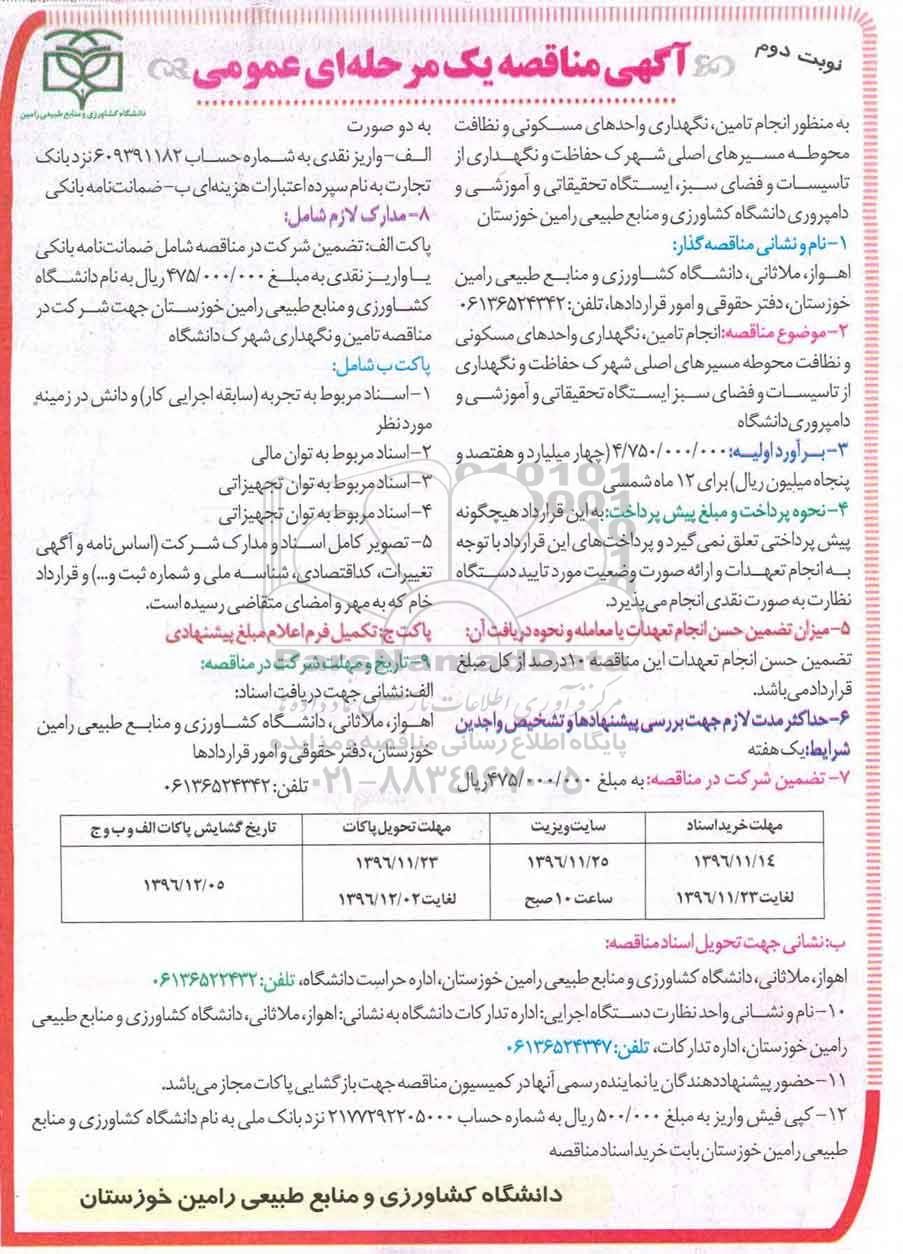 نوبت دوم
آگهی مناقصه یک مرحله‌ای عمومی
دانشگاه کشاورزی و منابع طبیعی رامین
به منظور انجام تامین، نگهداری واحدهای مسکونی و نظافت
محوطه مسیرهای اصلی شهرک حفاظت و نگهداری از
تاسیسات و فضای سبز، ایستگاه تحقیقاتی و آموزشی و
دامپروری دانشگاه کشاورزی و منابع طبیعی رامین خوزستان
۱- نام و نشانی مناقصه گذار:
اهواز، ملاثانی، دانشگاه کشاورزی و منابع طبیعی رامین
خوزستان، دفتر حقوقی و امور قراردادها، تلفن: ۰۶۱۳۶۵۲۴۳۴۲
۲- موضوع مناقصه: انجام تامین، نگهداری واحدهای مسکونی
و نظافت محوطه مسیرهای اصلی شهرک حفاظت و نگهداری
از تاسیسات و فضای سبز ایستگاه تحقیقاتی و آموزشی و
دامپروری دانشگاه
۳- برآورد اولیه: ۴/۷۵۰/۰۰۰/۰۰۰ (چهار میلیارد و هفتصد و
پنجاه میلیون ریال) برای ۱۲ ماه شمسی
۴- نحوه پرداخت و مبلغ پیش پرداخت: به این قرارداد هیچگونه
پیش پرداختی تعلق نمی گیرد و پرداخت‌های این قرارداد با توجه
به انجام تعهدات و ارائه صورت وضعیت مورد تایید دستگاه
نظارت به صورت نقدی انجام می‌پذیرد.
۵- میزان تضمین حسن انجام تعهدات یا معامله و نحوه دریافت آن:
تضمین حسن انجام تعهدات این مناقصه ۱۰درصد از کل مبلغ
قرارداد می‌باشد.
۶- حداکثر مدت لازم جهت بررسی پیشنهادها و تشخیص واجدین
شرایط: یک هفته
۷- تضمین شرکت در مناقصه: به مبلغ ۴۷۵/۰۰۰/۰۰۰ ریال
به دو صورت
الف- واریز نقدی به شماره حساب ۶۰۹۳۹۱۱۸۲ نزد بانک
تجارت به نام سپرده اعتبارات هزینه‌ای ب- ضمانت‌نامه بانکی
۸- مدارک لازم شامل:
پاکت الف: تضمین شرکت در مناقصه شامل ضمانت‌نامه بانکی
یا واریز نقدی به مبلغ ۴۷۵/۰۰۰/۰۰۰ ریال به نام دانشگاه
کشاورزی و منابع طبیعی رامین خوزستان جهت شرکت در
مناقصه تامین و نگهداری شهرک دانشگاه
پاکت ب شامل:
۱- اسناد مربوط به تجربه (سابقه اجرایی کار) و دانش در زمینه
مورد نظر
۲- اسناد مربوط به توان مالی
۳- اسناد مربوط به توان تجهیزاتی
۴- اسناد مربوط به توان تجهیزاتی
۵- تصویر کامل اسناد و مدارک شرکت (اساس‌نامه و آگهی
تغییرات، کداقتصادی، شناسه ملی و شماره ثبت و...) و قرارداد
خام که به مهر و امضای متقاضی رسیده است.
پاکت ج: تکمیل فرم اعلام مبلغ پیشنهادی
۹- تاریخ و مهلت شرکت در مناقصه:
الف: نشانی جهت دریافت اسناد:
اهواز، ملاثانی، دانشگاه کشاورزی و منابع طبیعی رامین
خوزستان، دفتر حقوقی و امور قراردادها
تلفن: ۰۶۱۳۶۵۲۴۳۴۲
ParsNamadData
پایگاه اطلاع رسانی مناقصه و مزایده
۰۲۱-۸۸۳۴۹۶۷۰-۵
مهلت خرید اسناد سایت ویزیت مهلت تحویل پاکات تاریخ گشایش پاکات الف و ب و ج
۱۳۹۶/۱۱/۱۴ ۱۳۹۶/۱۱/۲۵ ۱۳۹۶/۱۱/۲۳ ۱۳۹۶/۱۲/۰۵
لغایت ۱۳۹۶/۱۱/۲۳ ساعت ۱۰ صبح لغایت ۱۳۹۶/۱۲/۰۲
ب: نشانی جهت تحویل اسناد مناقصه:
اهواز، ملاثانی، دانشگاه کشاورزی و منابع طبیعی رامین خوزستان، اداره حراست دانشگاه، تلفن: ۰۶۱۳۶۵۲۲۴۳۲
۱۰- نام و نشانی واحد نظارت دستگاه اجرایی: اداره تدارکات دانشگاه به نشانی: اهواز، ملاثانی، دانشگاه کشاورزی و منابع طبیعی
رامین خوزستان، اداره تدارکات، تلفن: ۰۶۱۳۶۵۲۴۳۴۷
۱۱- حضور پیشنهاددهندگان یا نماینده رسمی آنها در کمیسیون مناقصه جهت بازگشایی پاکات مجاز می‌باشد.
۱۲- کپی فیش واریز به مبلغ ۵۰۰/۰۰۰ ریال به شماره حساب ۲۱۷۷۲۹۲۲۰۵۰۰۰ نزد بانک ملی به نام دانشگاه کشاورزی و منابع
طبیعی رامین خوزستان بابت خرید اسناد مناقصه
دانشگاه کشاورزی و منابع طبیعی رامین خوزستان